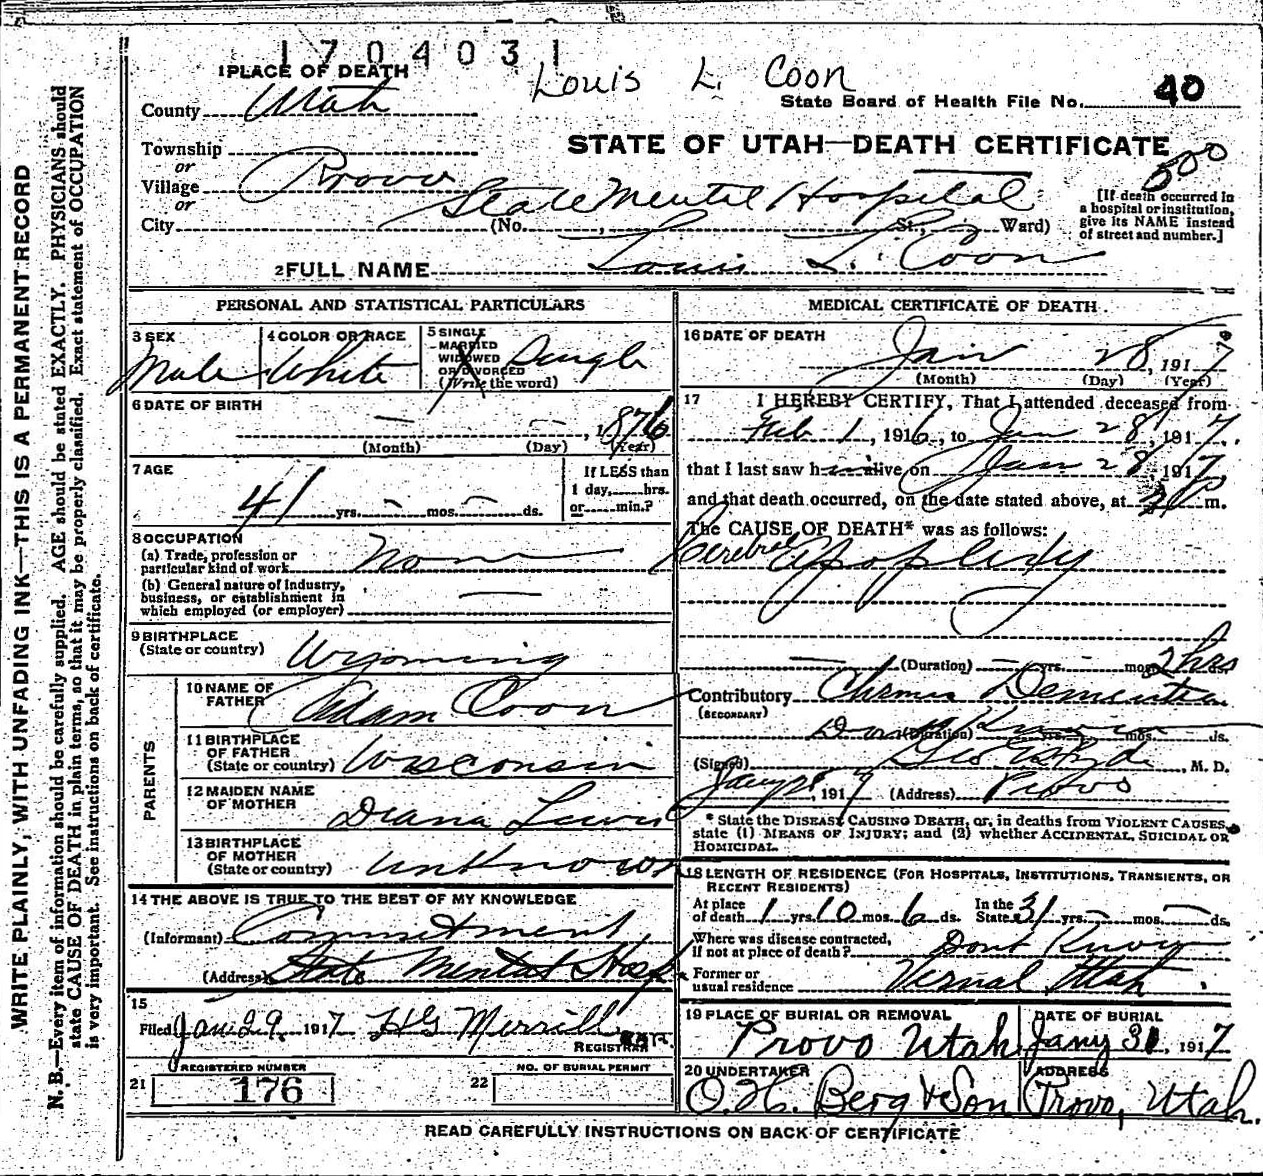 1704031
Louis L. Coon
1 PLACE OF DEATH
County Utah
State Board of Health File No. 40
STATE OF UTAH—DEATH CERTIFICATE
Township
or
Village Provo
or
City
State Mental Hospital
(No. , St., Ward)
500
[If death occurred in
a hospital or institution,
give its NAME instead
of street and number.]
2 FULL NAME Louis L. Coon
PERSONAL AND STATISTICAL PARTICULARS
3 SEX
Male
4 COLOR OR RACE
White
5 SINGLE
MARRIED
WIDOWED
OR DIVORCED
(Write the word)
Single
6 DATE OF BIRTH
— — , 1876
(Month) (Day) (Year)
7 AGE
41 yrs. - mos. - ds.
If LESS than
1 day, hrs.
or min.?
8 OCCUPATION
(a) Trade, profession or
particular kind of work None
(b) General nature of Industry,
business, or establishment in
which employed (or employer) —
9 BIRTHPLACE
(State or country) Wyoming
PARENTS
10 NAME OF
FATHER Adam Coon
11 BIRTHPLACE
OF FATHER
(State or country) Wisconsin
12 MAIDEN NAME
OF MOTHER Diana Lewis
13 BIRTHPLACE
OF MOTHER
(State or country) unknown
14 THE ABOVE IS TRUE TO THE BEST OF MY KNOWLEDGE
(Informant) Commitment
(Address) State Mental Hosp
15
Filed Jan 29 1917 HG Merrill
REGISTRAR
REGISTERED NUMBER
21 176
NO. OF BURIAL PERMIT
22
MEDICAL CERTIFICATE OF DEATH
16 DATE OF DEATH
Jan 28, 1917
(Month) (Day) (Year)
17 I HEREBY CERTIFY, That I attended deceased from
Feb 1, 1916, to Jan 28, 1917.
that I last saw h alive on Jan 28 1917
and that death occurred, on the date stated above, at m.
The CAUSE OF DEATH* was as follows:
Cerebral Apoplexy
— (Duration) — yrs. mos. 2 hrs ds.
Contributory
(SECONDARY)
Dementia
Dont Know
(Duration) yrs. mos. ds.
(Signed) Geo E Hyde, M. D.
, 1917 (Address) Provo
* State the DISEASE CAUSING DEATH, or, in deaths from VIOLENT CAUSES,
state (1) MEANS OF INJURY; and (2) whether ACCIDENTAL, SUICIDAL OR
HOMICIDAL.
18 LENGTH OF RESIDENCE (FOR HOSPITALS, INSTITUTIONS, TRANSIENTS, OR
RECENT RESIDENTS)
At place
of death 1 yrs. 10 mos. 6 ds.
In the
State 31 yrs. - mos. — ds.
Where was disease contracted,
if not at place of death? Dont Know
Former or
usual residence Vernal Utah
19 PLACE OF BURIAL OR REMOVAL
Provo Utah
DATE OF BURIAL
Jany 31, 1917
20 UNDERTAKER
O. H. Berg & Son
ADDRESS
Provo, Utah.
READ CAREFULLY INSTRUCTIONS ON BACK OF CERTIFICATE
WRITE PLAINLY, WITH UNFADING INK—THIS IS A PERMANENT RECORD
N. B.—Every item of information should be carefully supplied. AGE should be stated EXACTLY. PHYSICIANS should
state CAUSE OF DEATH in plain terms, so that it may be properly classified. Exact statement of OCCUPATION
is very important. See instructions on back of certificate.